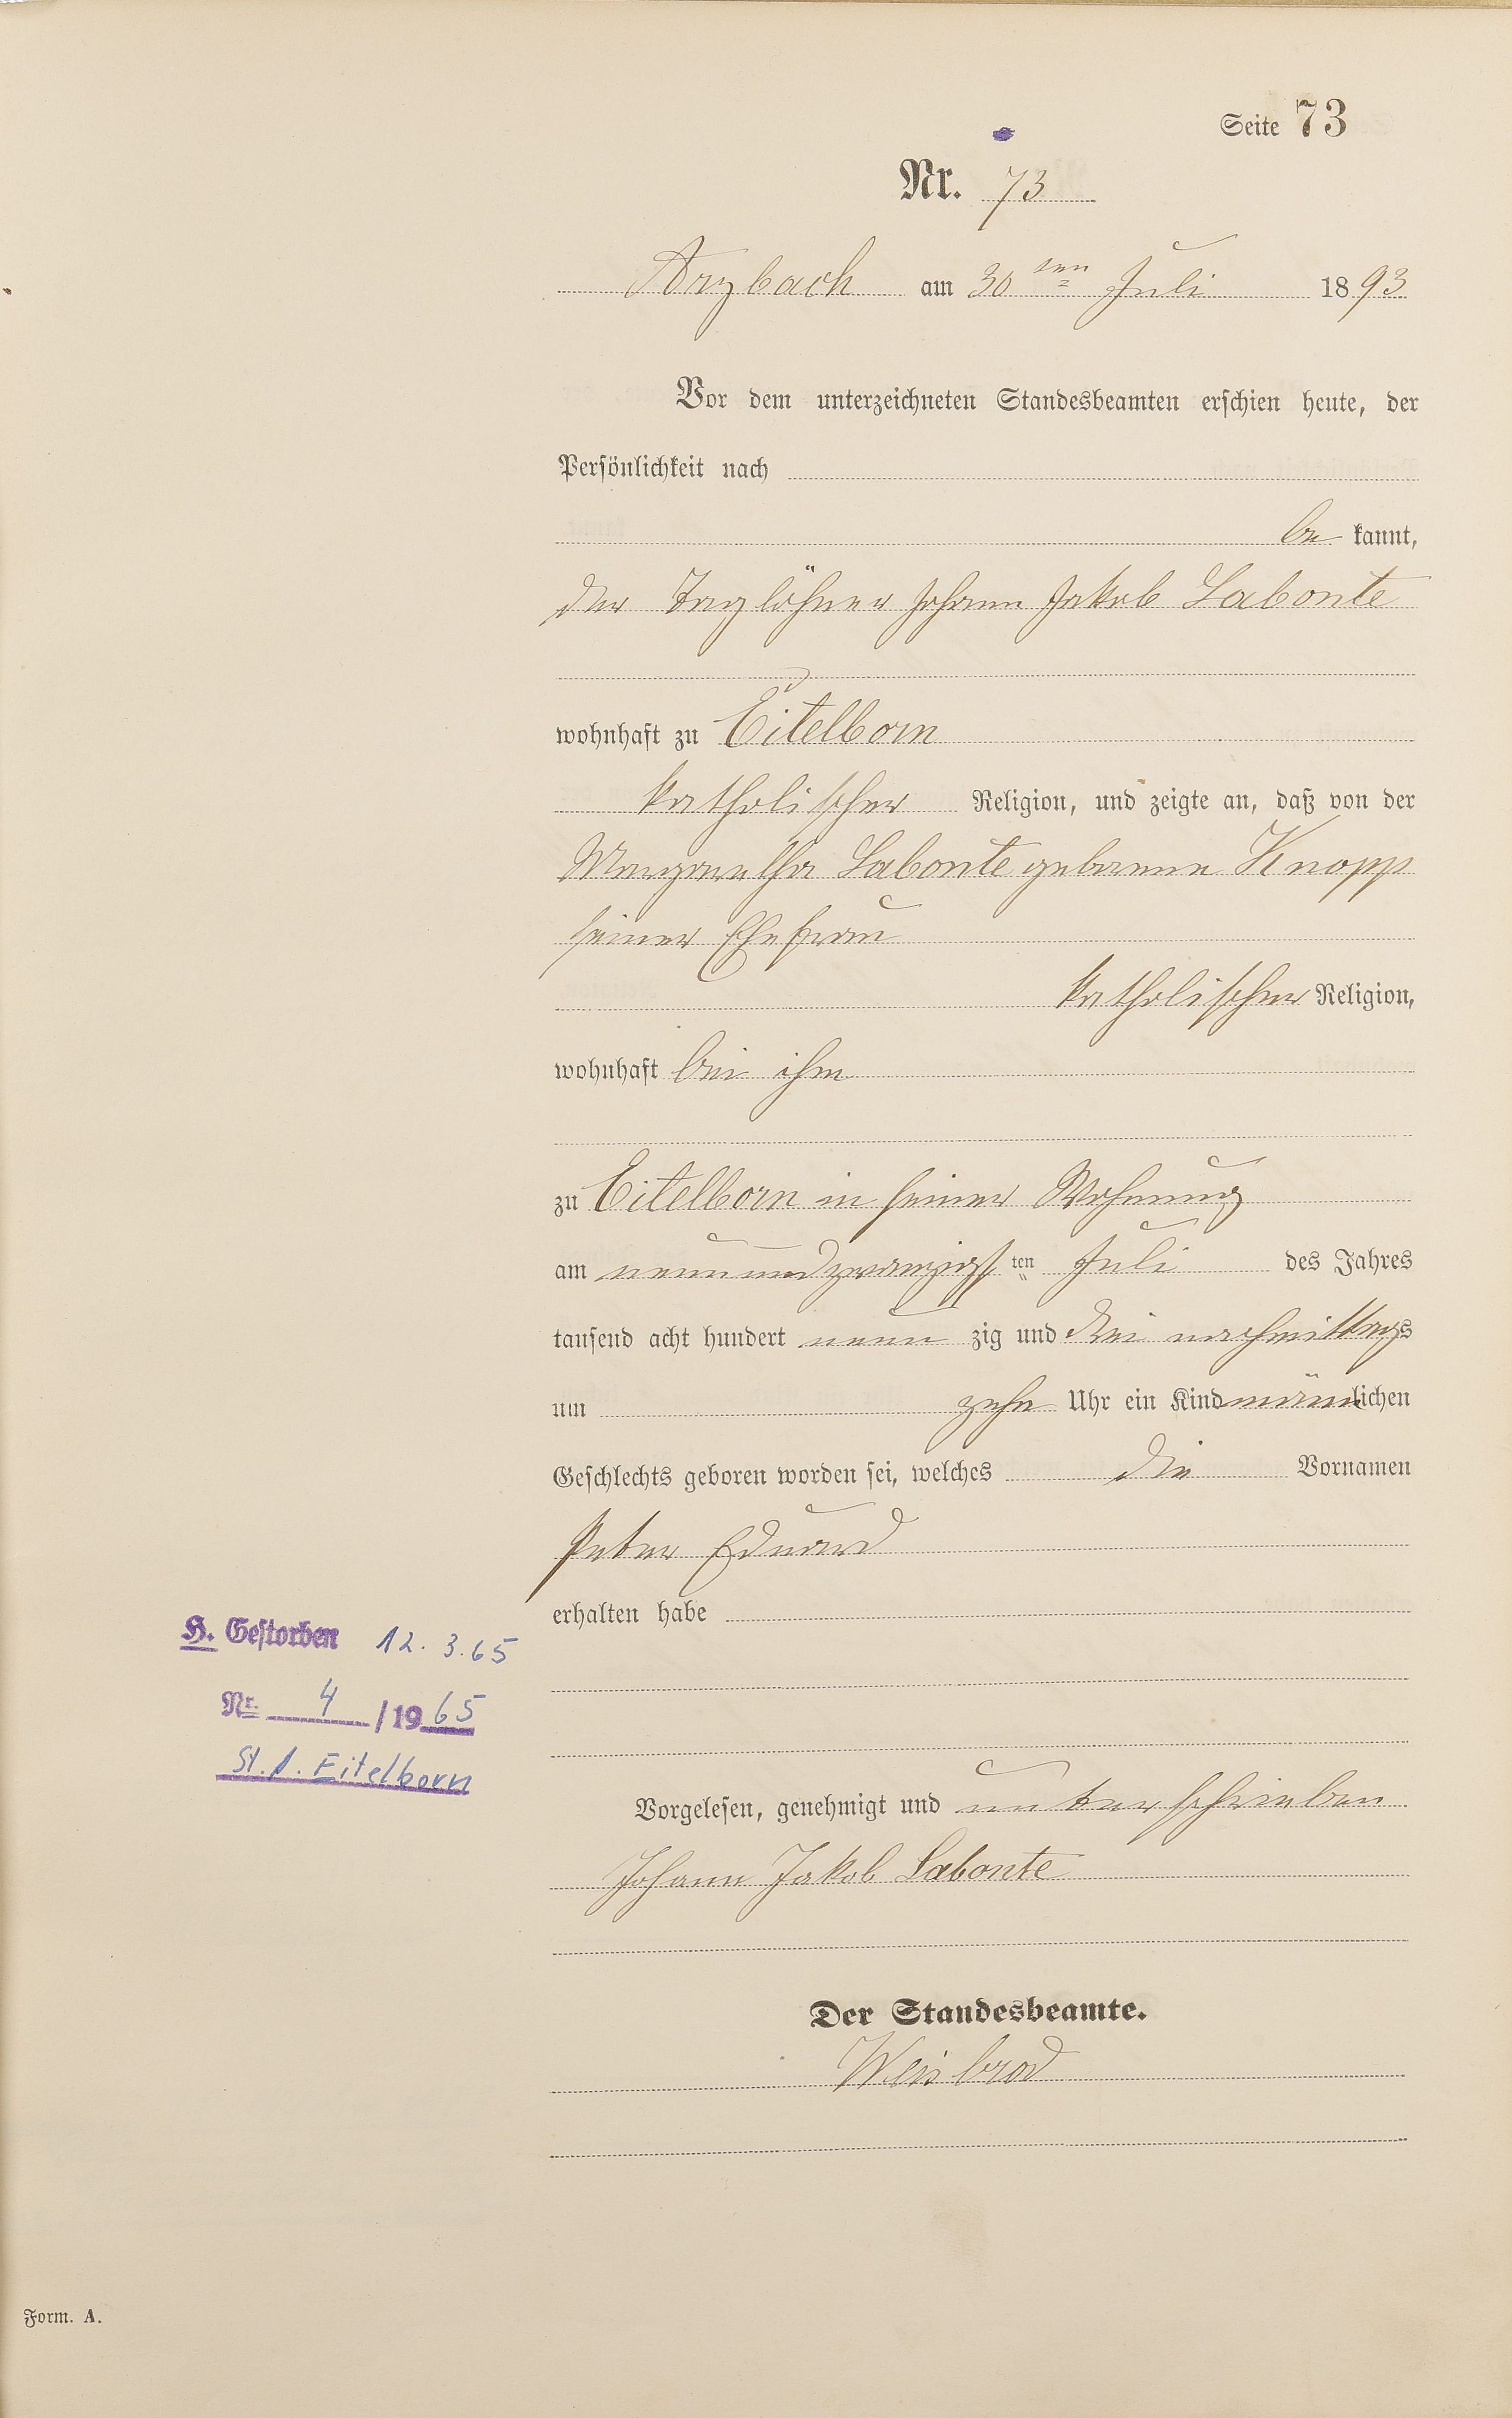 Seite 73
Nr. 73
Arzbach am 30ten Juli 1893
Vor dem unterzeichneten Standesbeamten erschien heute, der
Persönlichkeit nach
be kannt,
der Taglöhner Johann Jakob Labonte
wohnhaft zu Eitelborn
katholischer Religion, und zeigte an, daß von der
Margaretha Labonte geborene Knopp
seiner Ehefrau
katholischer Religion,
wohnhaft bei ihm
zu Eitelborn in seiner Wohnung
am neunundzwanzigsten Juli des Jahres
tausend acht hundert neun zig und drei nachmittags
um zehn Uhr ein Kind männlichen
Geschlechts geboren worden sei, welches die Vornamen
Peter Eduard
erhalten habe
H. Gestorben 12.3.65
Nr. 4 /1965
St.A. Eitelborn
Vorgelesen, genehmigt und unterschrieben
Johann Jakob Labonte
Der Standesbeamte.
Weisbrod
Form. A.